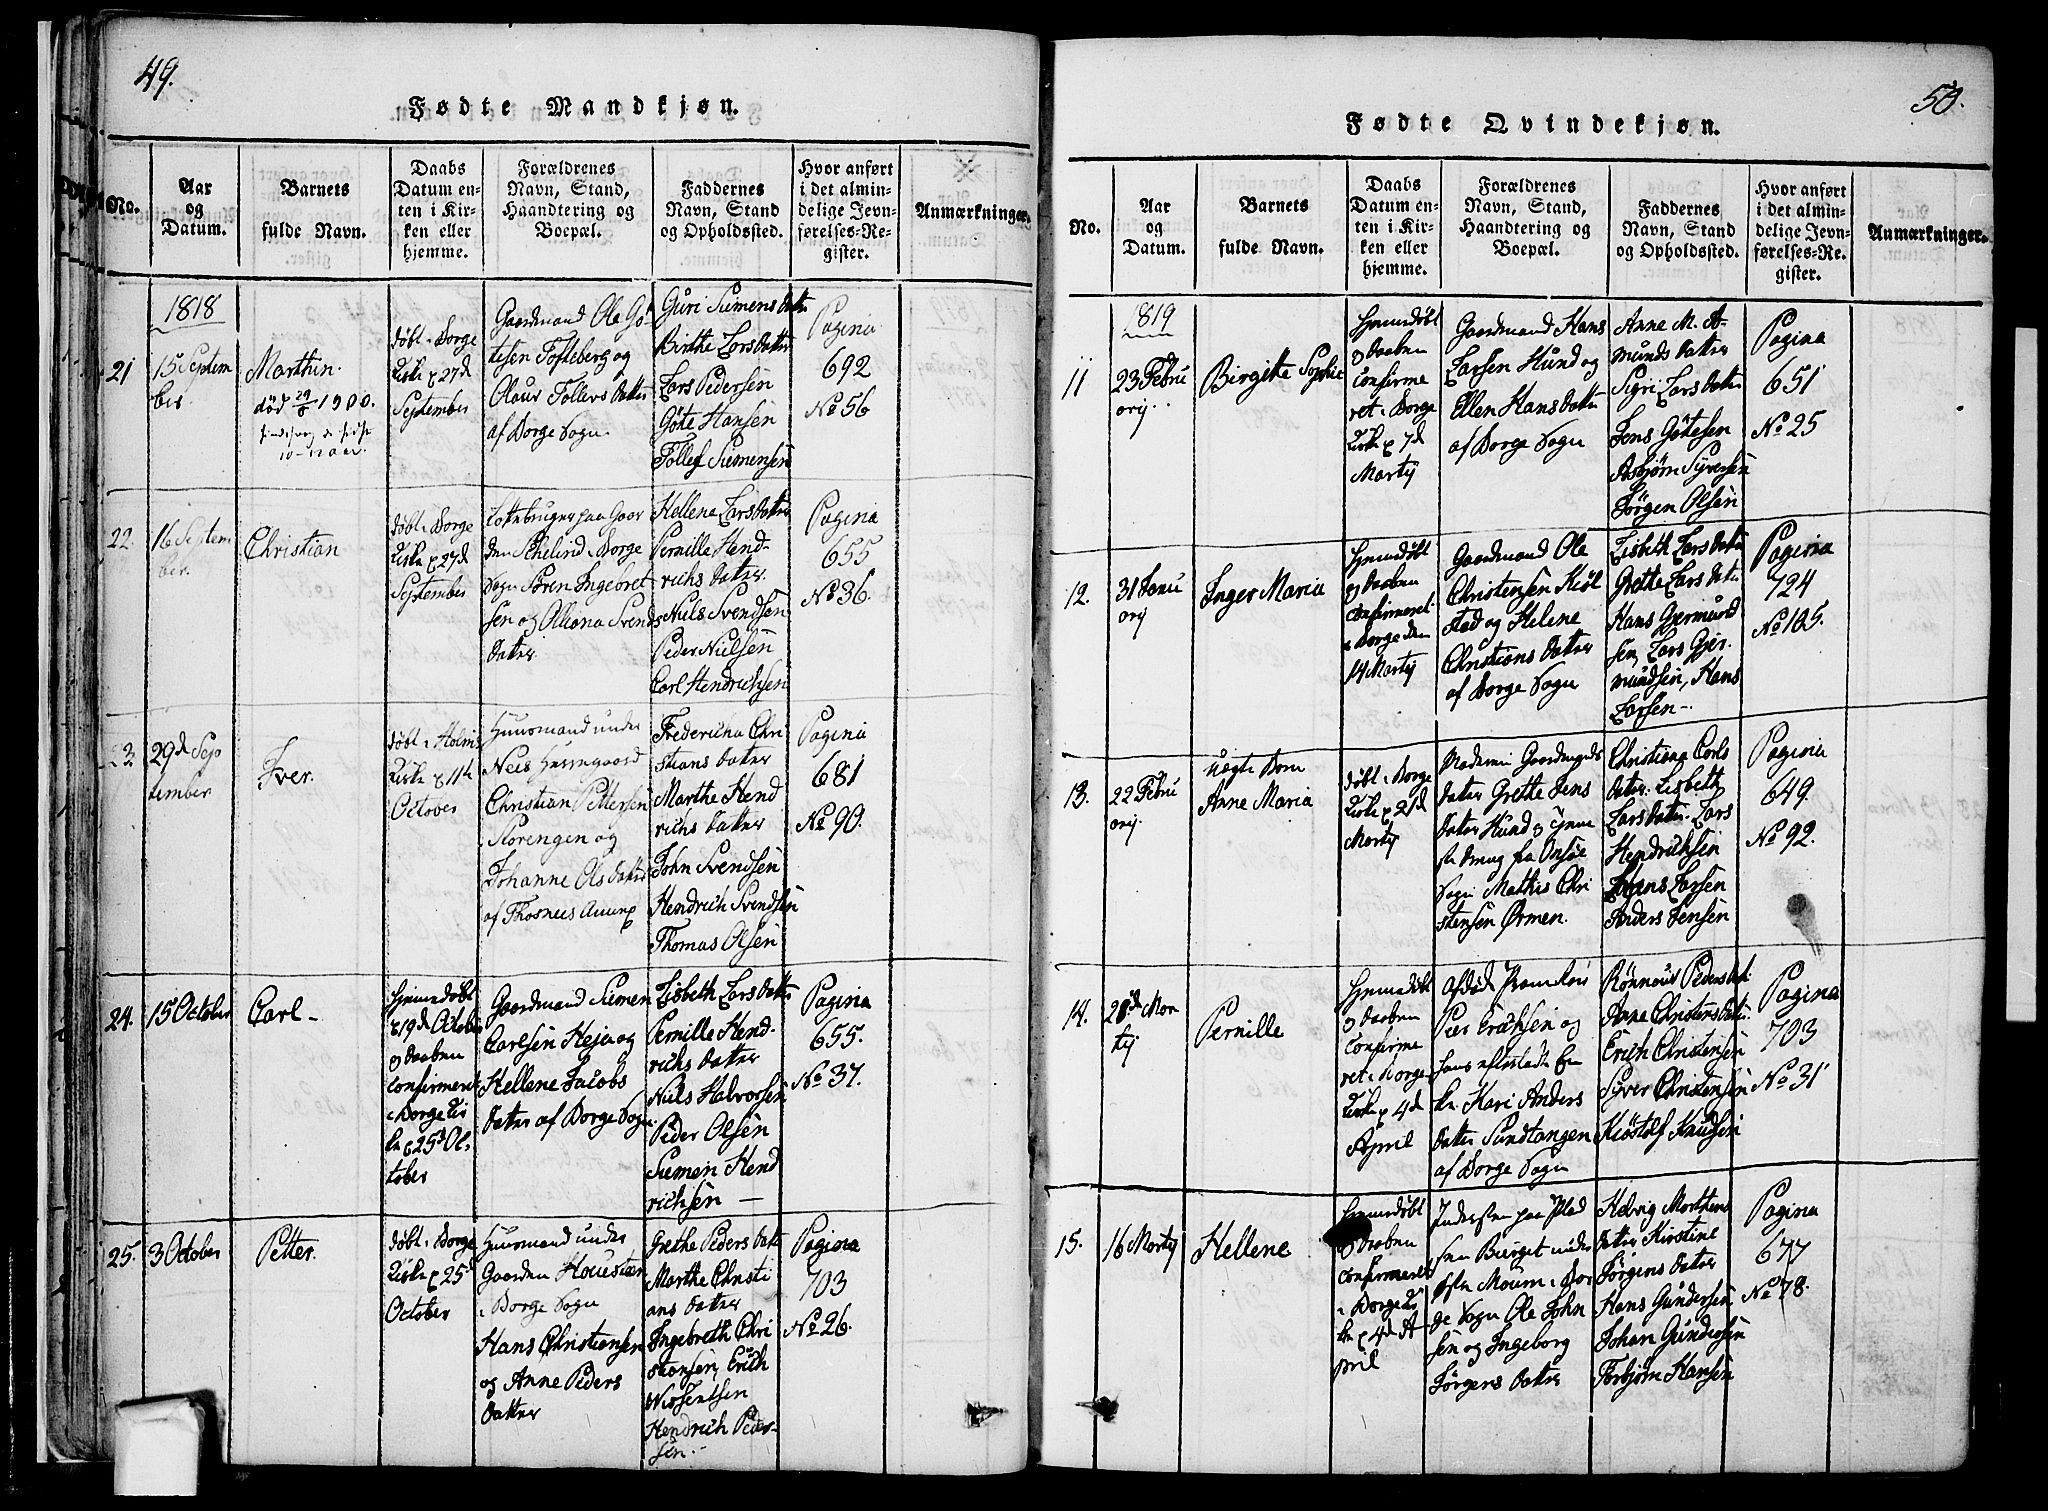 49.
Fødte Mandkjøn.
No.
Aar
og
Datum.
Barnets
fulde Navn.
Daabs
Datum en-
ten i Kir-
ken eller
hjemme.
Forældrenes
Navn, Stand,
Haandtering og
Boepæl.
Faddernes
Navn, Stand
og Opholdssted.
Hvor anført
i det almin-
delige Jevn-
førelses-Re-
gister.
Anmærkninger.
1818
21
15 Septem
ber
Marthin.
død 29/8 1900.
10-12 aar.
døbt i Borge
Kirke 27d
September
Gaardmand Ole Gö-
tesen Tofteberg og
Olaur Tollevs datter
af Borge Sogn
Guri Siimens datter
Birthe Lars datter
Lars Pedersen
Göte Hansen
Tollef Siimensen
Pagina
692
No 56
22.
16 Septem
ber.
Christian
døbt i Borge
Kirke 27d
September
den i Borge
Sogn Sören Ingebret
sen og Svends
datter
Hellene Lars datter
Pernille Hend-
richs datter
Niels Svendsen
Peder Nielsen
Carl Hendrichsen
Pagina
655
No 36.
23
29d Sep
tember
Iver.
døbt i Holms
Kirke 11te
October
Huusmand under
Christian Pettersen
Storengen og
Johanne Ols datter
af Thosnes
Fredericha Chri
stians datter
Marthe Hend
richs datter
John Svendsen
Hendrich Svendsen
Thomas Olsen
Pagina
681
No 90.
24.
15 October
Carl -
Hjemmedøbt
19d October
og daaben
confirmeret
i Borge Kir
ke 25d Oc
tober
Gaardmand Siimen
Carlsen Heje og
Hellene Jacobs
datter af Borge Sogn.
Lisbeth Lars datter
Pernille Hend-
richs datter
Niels Halvorsen
Peder Olsen
Siimen Hend
richsen -
Pagina
655.
No 37.
25.
3 October
Petter.
døbt i Borge
Kirke 25d
October
Huusmand under
Gaarden
i Borge Sogn
Hans Christiansen
og Anne Peders
datter
Grethe Peders datt
Marthe Christi
ans datter
Ingebreth Chri
stiansen, Erich
Hendrich Peder-
sen. -
Pagina
703
No 26.
50.
Fødte Qvindekjøn.
No.
Aar
og
Datum.
Barnets
fulde Navn.
Daabs
Datum en-
ten i Kir-
ken eller
hjemme.
Forældrenes
Navn, Stand,
Haandtering og
Boepæl.
Faddernes
Navn, Stand
og Opholdssted.
Hvor anført
i det almin-
delige Jevn-
førelses-Re-
gister.
Anmærkninger.
1819
11
23 Febru
arij
Birgitte Sophie
Hjemmedøbt
og daaben
confirme
ret i Borge
Kirke 7d
Martij
Gaardmand Hans
Larsen Hund og
Ellen Hans datter
af Borge Sogn
Anne M. A-
munds datter
Sigri Lars datter
Jens Götesen
Asbjørn Syversen
Jörgen Olsen
Pagina
651
No 25
12.
31 Janu
arij
Inger Maria
Hjemmedøbt
og daaben
confirmeret
i Borge den
14 Martij
Gaardmand Ole
Christensen Kiöl
stad og Helene
Christians datter
af Borge Sogn
Lisbeth Lars datter
Grethe Lars datter
Hans Gjermund
sen, Lars Gjer-
mundsen, Hans
Larsen -
Pagina
724
No 105.
13.
22 Febru
arij.
Uægte Barn
Anne Maria
døbt i Borge
Kirke 21d
Martij
datter Grethe Jens
datter Hund og
fra Onsøe
Sogn Mathis Chri
stensen Ørmen.
Christiana Carls
datter. Lisbeth
Lars datter. Lars
Hendrichsen
Hans Larsen
Anders Jensen
Pagina
649.
No 92.
14.
Mar
tij
Pernille
Hjemmedøbt
og daaben
confirme
ret i Borge
Kirke 4d
April
Peer Erichsen og
hans efterladte En
ke Kari Anders
datter Sundtangen
af Borge Sogn
Rönnoug Peders datt.
Anne Christens datter
Erich Christensen
Syver Christensen
Kiöstolf Knudsen
Pagina
703
No 31
15.
16 Martij
Hellene
Hjemmedøbt
og daaben
confirmeret
i Borge Kir
ke 4d A
pril
Inderster paa Plad
sen Burget under
Moum i Bor
ge Sogn Ole John
sen og Ingeborg
Jörgens datter
Helvig Marthins
datter Kirstine
Jörgens datter
Hans Gundersen
Johan Gundersen
Torbjørn Hansen
Pagina
677
No 78.